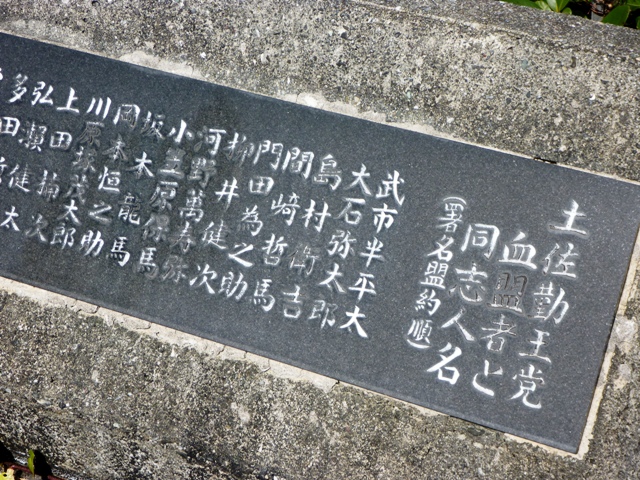 土佐勤王党
血盟者と
同志人名
(署名盟約順)
武市半平太
大石弥太郎
島村衛吉
間崎哲馬
門田為之助
柳井健次
河野萬寿弥
小笠原保馬
坂本龍馬
岡本恒之助
川原塚茂太郎
上田楠次
弘瀬健太
多田哲